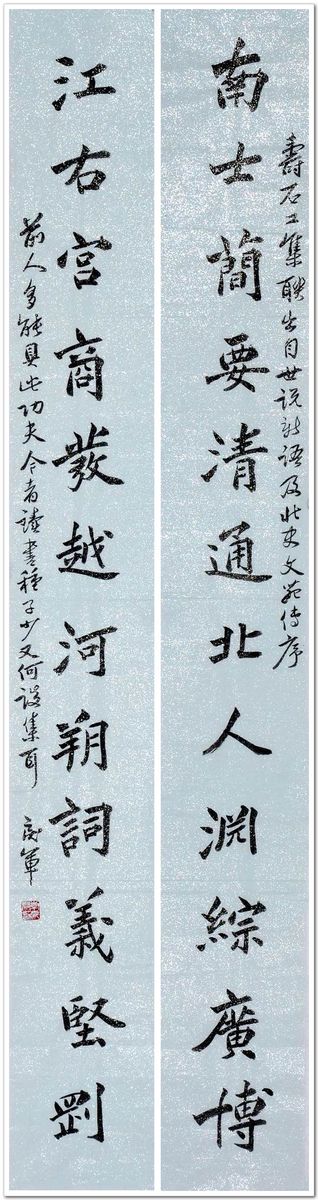 壽石工集聯出自世説新語及北史文苑傳序
南士簡要清通北人渊綜廣博
江右宮商發越河朔詞義堅剛
前人多能具此功夫今者讀書種子少又何談集耳